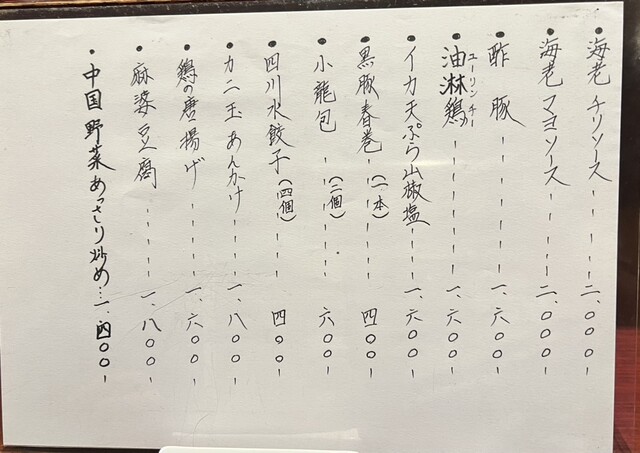 ・海老チリソース-----二、〇〇〇-
・海老マヨソース-----二、〇〇〇-
・酢豚-------一、六〇〇-
・油淋鶏ユーリンチー------一、六〇〇-
・イカ天ぷら山椒塩---一、六〇〇-
・黒豚春巻(一本)-----四〇〇-
・小龍包(二個)-----六〇〇-
・四川水餃子(四個)----四〇〇-
・カニ玉あんかけ-----一、八〇〇-
・鶏の唐揚げ------一、六〇〇-
・麻婆豆腐------一、八〇〇-
・中国野菜あっさり炒め…一、四〇〇-